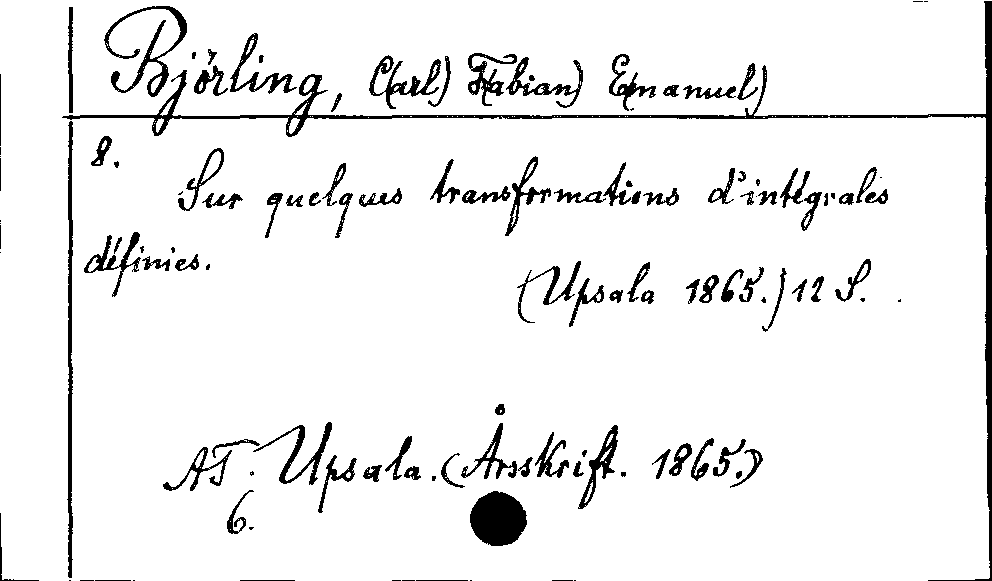 Björling, C(arl) F(abian) E(manuel)
8.
Sur quelques transformations d'intégrales
définies.
(Upsala 1865.) 12 S.
AT. Upsala. (Årsskrift. 1865.)
6.